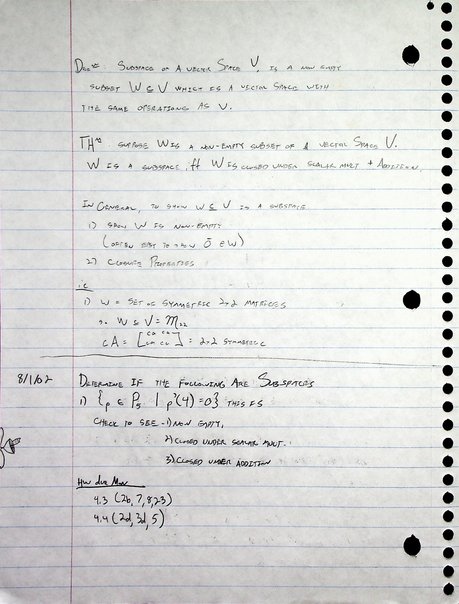 Def<sup>n</sup>: SUBSPACE OF A VECTOR SPACE V, IS A NON EMPTY
SUBSET W ⊆ V WHICH IS A VECTOR SPACE WITH
THE SAME OPERATIONS AS V.
TH<sup>M</sup>: SUPPOSE W IS A NON-EMPTY SUBSET OF A VECTOR SPACE V.
W IS A SUBSPACE iff W IS CLOSED UNDER SCALAR MULT + ADDITION.
IN GENERAL, TO SHOW W ⊆ V IS A SUBSPACE
1) SHOW W IS NON-EMPTY
(OFTEN EASY TO SHOW 0̄ ∈ W)
2) CLOSURE PROPERTIES
i.e
1) W = SET OF SYMMETRIC 2x2 MATRICIES
so W ⊆ V = M22
cA = [ ] = 2x2 SYMMETRIC
8/1/02 DETERMINE IF THE FOLLOWING ARE SUBSPACES
1) {p ∈ P5 | p'(4) = 0} THIS IS
CHECK TO SEE - 1) NON EMPTY,
2) CLOSED UNDER SCALAR MULT.
3) CLOSED UNDER ADDITION
HW due Mon
4.3 (2b, 7, 8, 23)
4.4 (2d, 3d, 5)